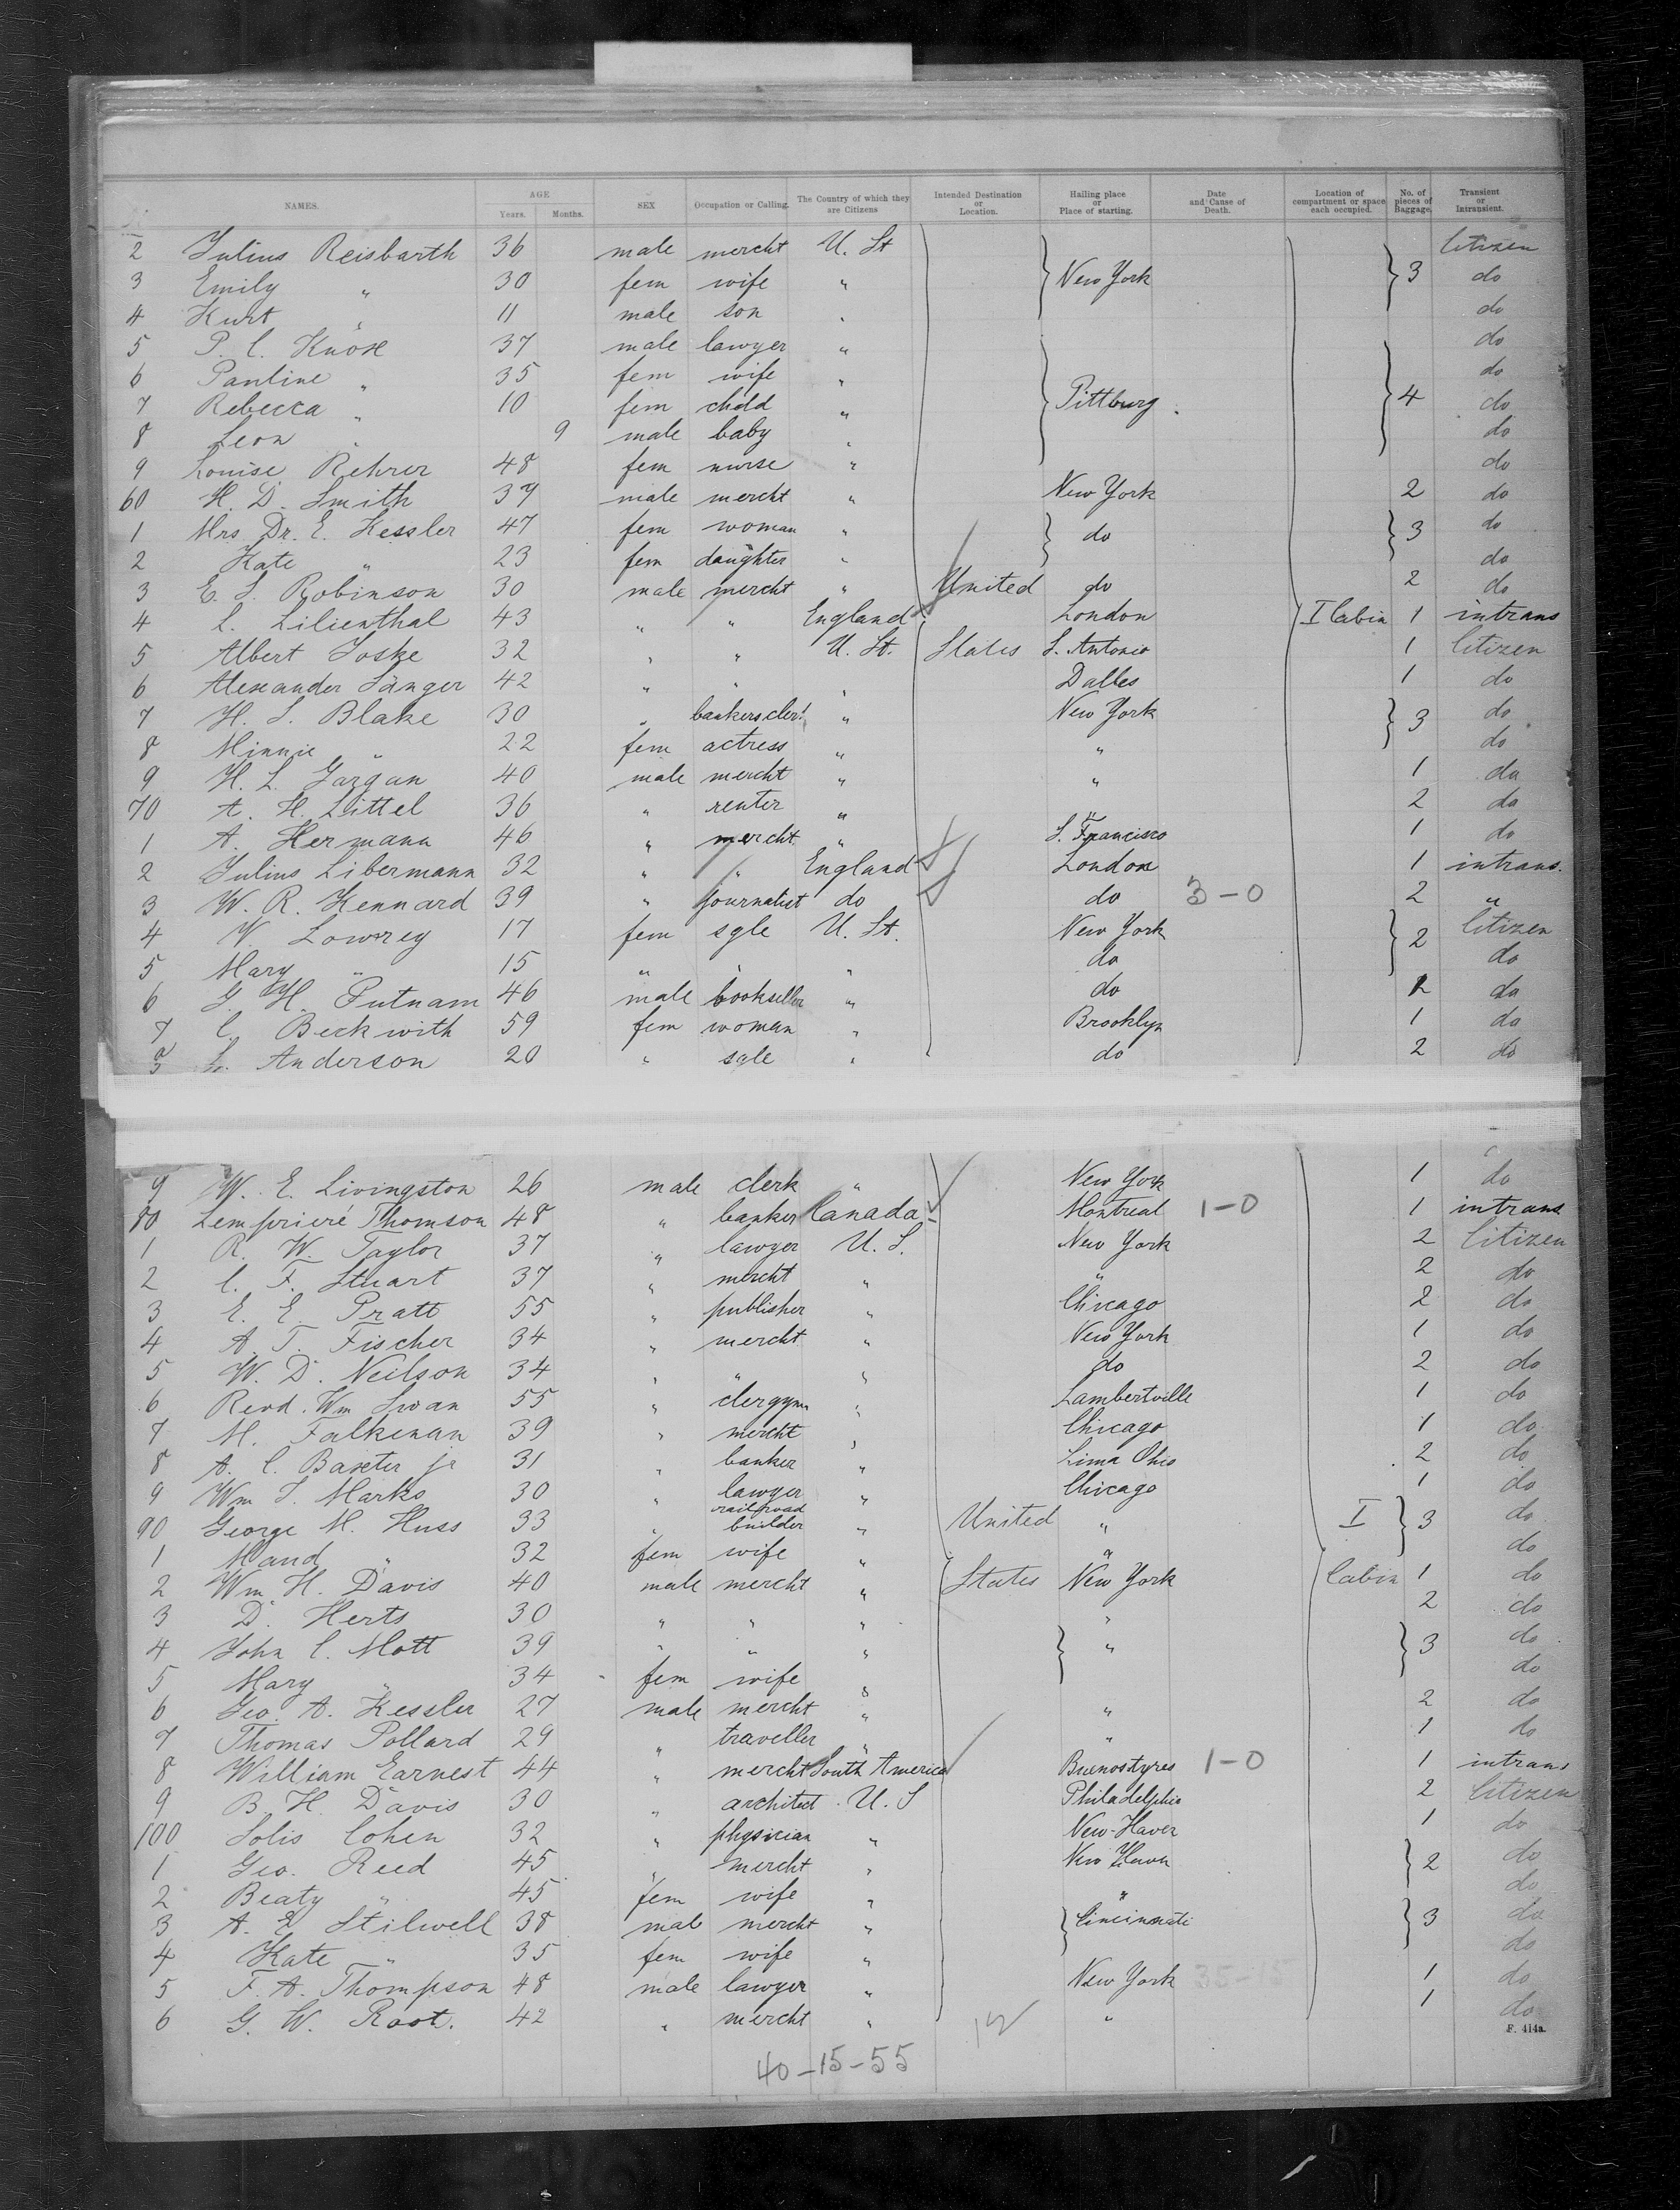 NAMES. AGE Years. Months. SEX Occupation or Calling. The Country of which they are Citizens Intended Destination or Location. Hailing place or Place of starting. Date and Cause of Death. Location of compartment or space each occupied. No. of pieces of Baggage. Transient or Intransient.
2 Julius Reisbarth 36 male mercht U. St Citizen
3 Emily " 30 fem wife " New York 3 do
4 Kurt " 11 male son " do
5 P. C. Knox 37 male lawyer " do
6 Pauline " 35 fem wife " do
7 Rebecca " 10 fem child " Pittburg. 4 do
8 Leon " 9 male baby " do
9 Louise Rehrer 48 fem nurse " do
60 H. D. Smith 37 male mercht " New York 2 do
1 Mrs. Dr. E. Kessler 47 fem woman " do 3 do
2 Kate " 23 fem daughter " do
3 E. S. Robinson 30 male mercht " United do 2 do
4 L. Lilienthal 43 " " England London I Cabin 1 intrans
5 Albert Joske 32 " " U. St. States S. Antonio 1 Citizen
6 Alexander Sänger 42 " " " Dalles 1 do
7 H. S. Blake 30 " bankers cler! " New York 3 do
8 Minnie " 22 fem actress " " do
9 H. L. Gargan 40 male mercht " " 1 do
70 A. H. Littel 36 " renter " " 2 do
1 A. Hermann 46 " mercht. " S. Francisco 1 do
2 Julius Libermann 32 " " England London 1 intrans.
3 W. R. Kennard 39 " journalist do do 3-0 2 "
4 W. Lowrey 17 fem sgle U. St. New York 2 Citizen
5 Mary " 15 " " " do do
6 G. H. Putnam 46 male bookseller " do 2 do
7 C. Beckwith 59 fem woman " Brooklyn 1 do
Anderson 20 " sgle " do 2 do
9 W. E. Livingston 26 male clerk " New York 1 do
80 Lemprieré Thomson 48 " banker Canada Montreal 1-0 1 intrans
1 R. W. Taylor 37 " lawyer U. S. New York 2 Citizen
2 C. F. Stuart 37 " mercht " " 2 do
3 E. E. Pratt 55 " publisher " Chicago 2 do
4 A. T. Fischer 34 " mercht. " New York 1 do
5 W. D. Neilson 34 " " " do 2 do
6 Revd. Wm Swan 55 " clergym " Lambertville 1 do
7 M. Falkenan 39 " mercht " Chicago 1 do
8 A. C. Baxter jr 31 " banker " Lima Ohio 2 do
9 Wm S. Marks 30 " lawyer " Chicago 1 do
90 George M. Huss 33 " railroad builder " United " I 3 do
1 Maud " 32 fem wife " " do
2 Wm H. Davis 40 male mercht " States New York Cabin 1 do
3 D. Herts 30 " " " " 2 do
4 John C. Mott 39 " " " " 3 do
5 Mary " 34 fem wife " do
6 Geo. A. Kessler 27 male mercht " " 2 do
7 Thomas Pollard 29 " traveller " " 1 do
8 William Earnest 44 " mercht South America BuenosAyres 1-0 1 intrans
9 B. H. Davis 30 " architect U. S Philadelphia 2 Citizen
100 Solis Cohen 32 " physician " New-Haven 1 do
1 Geo. Reed 45 " mercht " New Haven 2 do
2 Beaty " 45 fem wife " " do
3 A. E. Stilwell 38 male mercht " Cincinnati 3 do
4 Kate " 35 fem wife " do
5 F. A. Thompson 48 male lawyer " New York 1 do
6 G. W. Root. 42 " mercht " " 1 do
F. 414a.
40-15-55